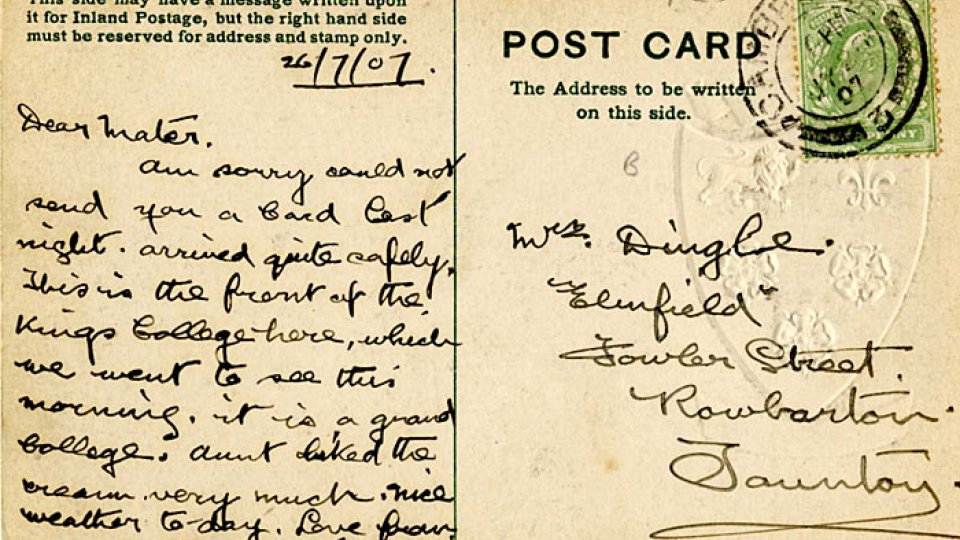 This side may have a message written upon
it for Inland Postage, but the right hand side
must be reserved for address and stamp only.
26/7/07.
Dear Mater.
am sorry could not
send you a Card Last
night. arrived quite safely.
This is the front of the
Kings College here, which
we went to see this
morning. it is a grand
College. Aunt liked the
cream very much. nice
weather to-day. Love from
POST CARD
The Address to be written
on this side.
B
Mrs. Dingle.
"Elmfield"
Fowler Street.
Rowbarton.
Taunton.
07